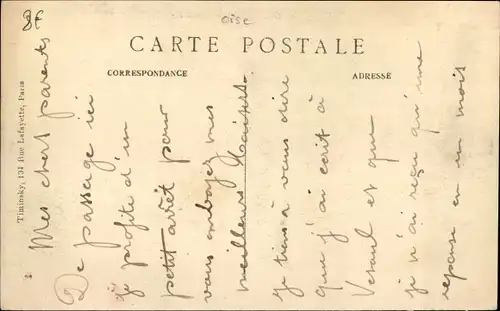 Oise
CARTE POSTALE
CORRESPONDANCE
ADRESSE
Timinsky, 131 Rue Lafayette, Paris
Mes chers parents
De passage ici
je profite d'un
petit arrêt pour
vous envoyer mes
meilleurs baisers.
je tiens à vous dire
que j'ai écrit à
et que
je n'ai reçu qu'une
reponse en un mois